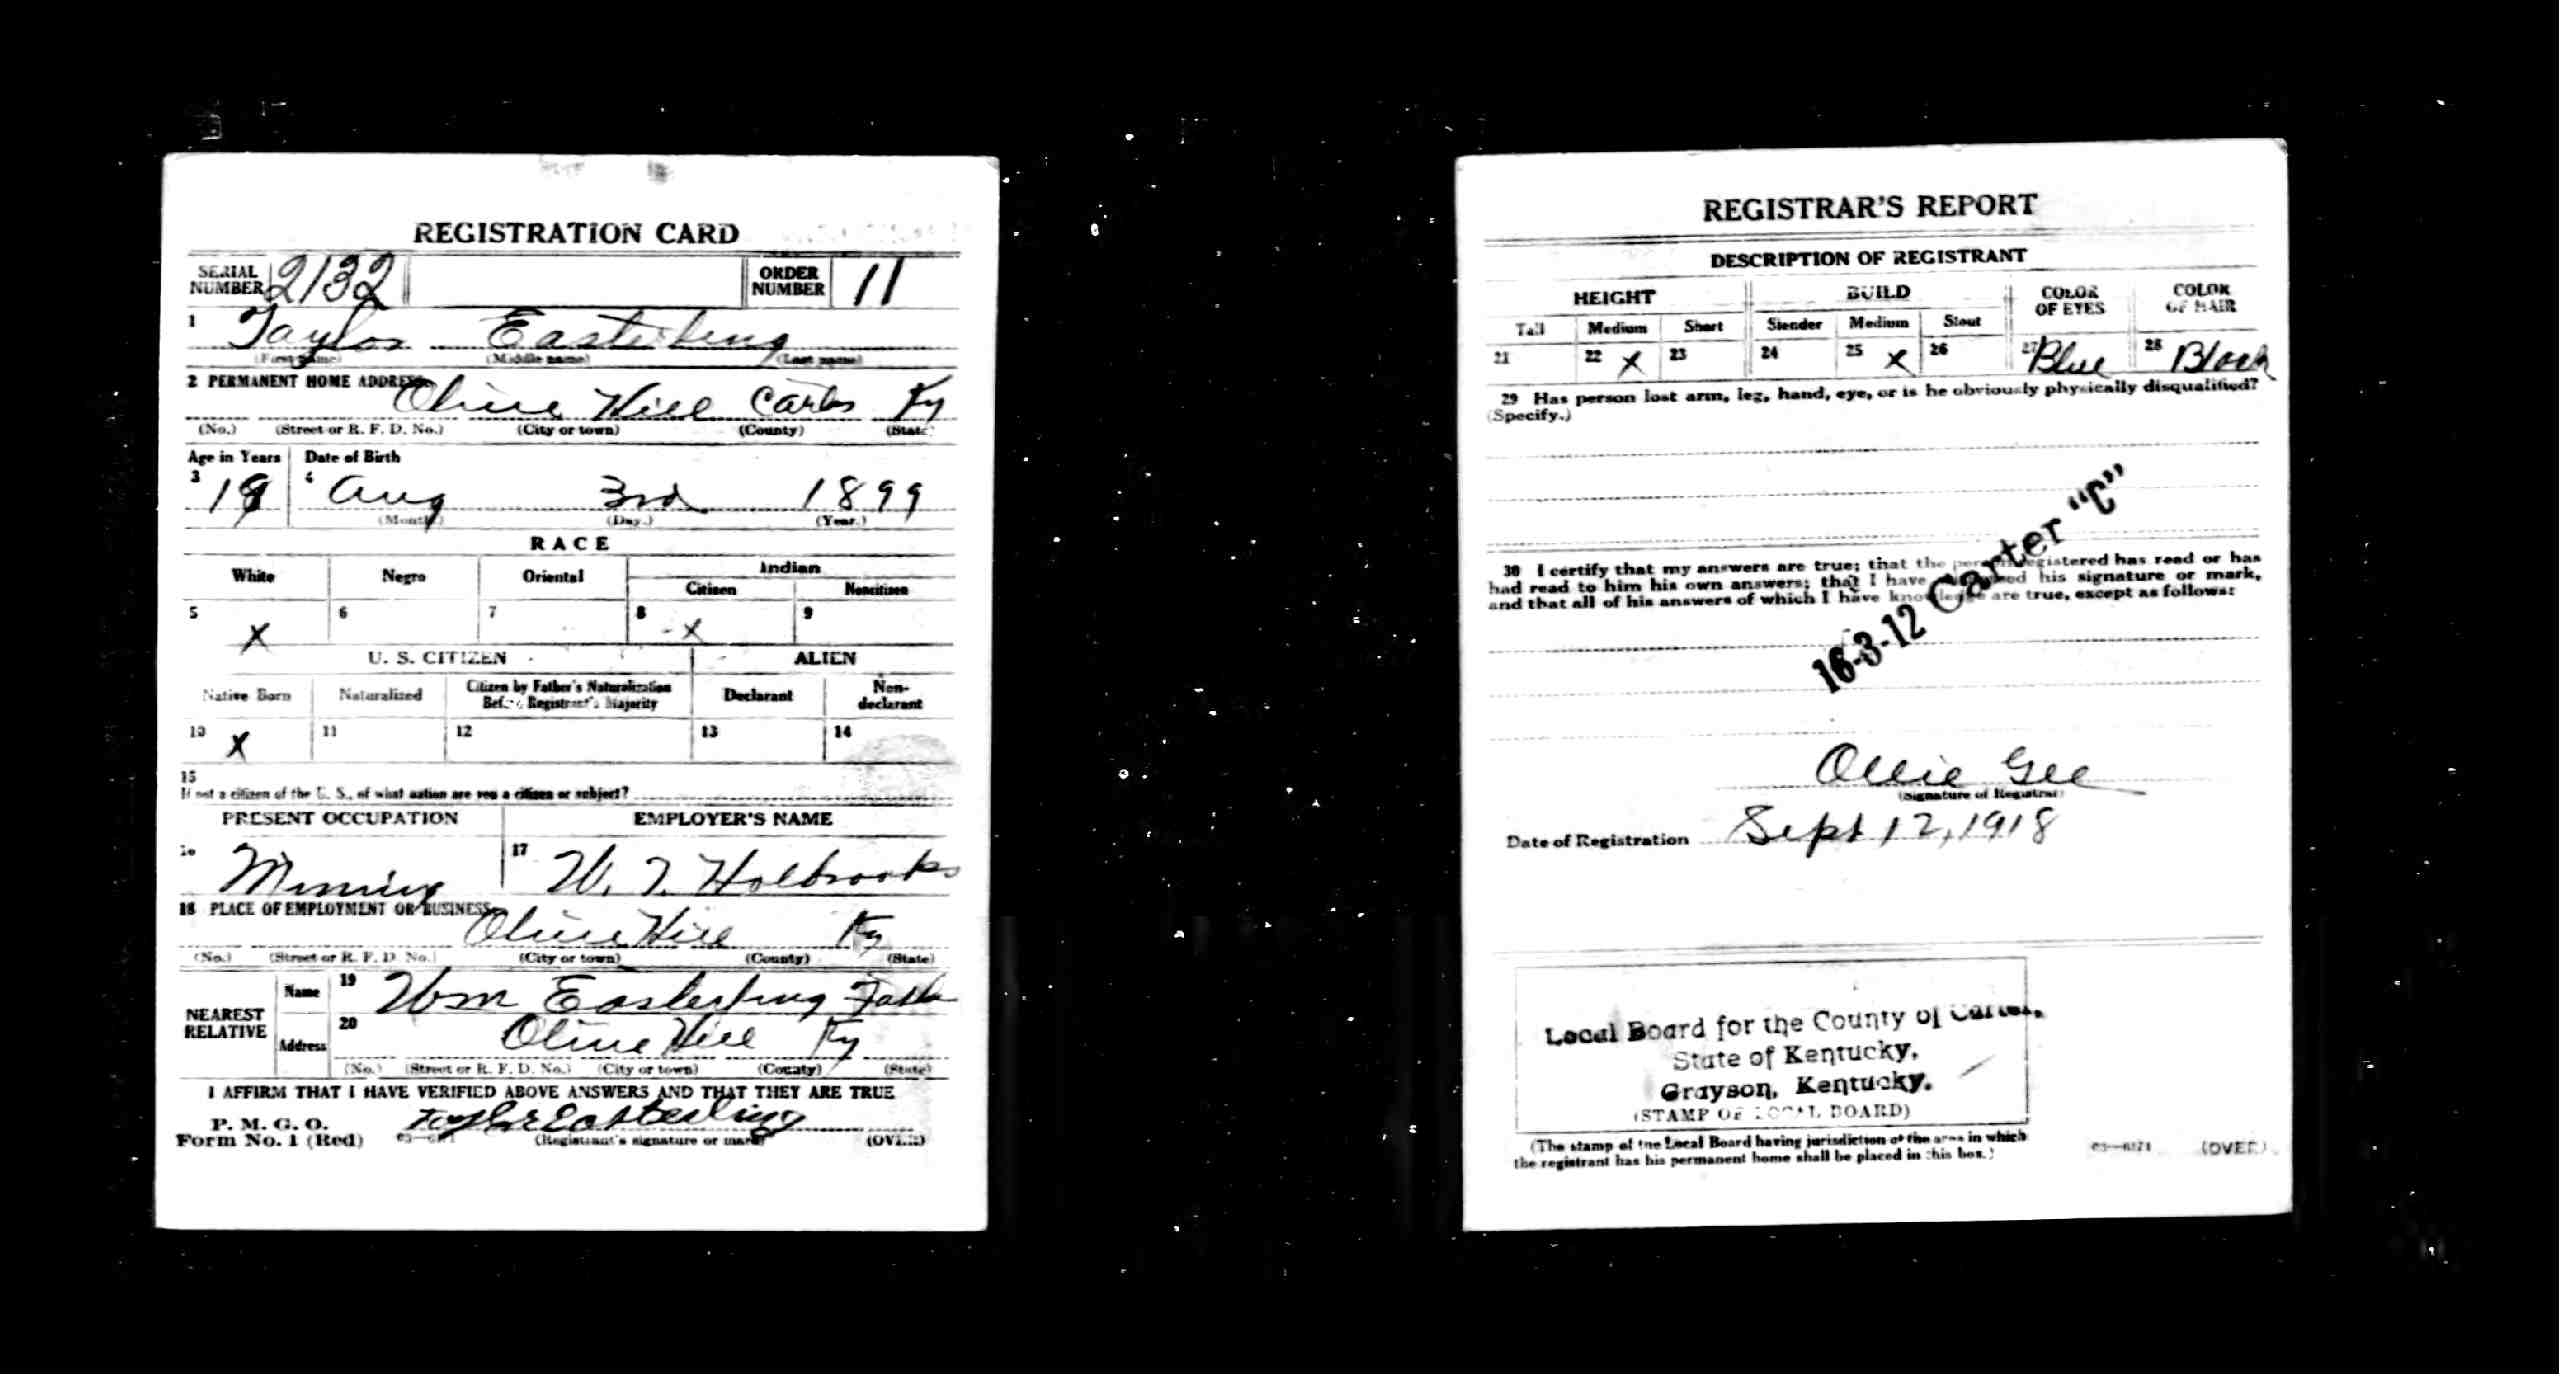 REGISTRATION CARD
SERIAL NUMBER 2132 ORDER NUMBER 11
1 Taylor Easterling
(First name) (Middle name) (Last name)
2 PERMANENT HOME ADDRESS
Olive Hill Carter Ky
(No.) (Street or R. F. D. No.) (City or town) (County) (State)
Age in Years Date of Birth
3 19 4 Aug 3rd 1899
(Month.) (Day.) (Year.)
RACE
White Negro Oriental Indian
Citizen Noncitizen
5 X 6 7 8 X 9
U. S. CITIZEN ALIEN
Native Born Naturalized Citizen by Father's Naturalization Before Registrant's Majority Declarant Non-declarant
10 X 11 12 13 14
15
If not a citizen of the U. S., of what nation are you a citizen or subject?
PRESENT OCCUPATION EMPLOYER'S NAME
16 Mining 17 W. T. Holbrooks
18 PLACE OF EMPLOYMENT OR BUSINESS
Olive Hill Ky
(No.) (Street or R. F. D. No.) (City or town) (County) (State)
NEAREST RELATIVE
Name 19 Wm Easterling Father
Address 20 Olive Hill Ky
(No.) (Street or R. F. D. No.) (City or town) (County) (State)
I AFFIRM THAT I HAVE VERIFIED ABOVE ANSWERS AND THAT THEY ARE TRUE
P. M. G. O.
Form No. 1 (Red) Easterling
(Registrant's signature or mark) (OVER)
REGISTRAR'S REPORT
DESCRIPTION OF REGISTRANT
HEIGHT BUILD COLOR OF EYES COLOR OF HAIR
Tall Medium Short Slender Medium Stout
21 22 X 23 24 25 X 26 27 Blue 28 Black
29 Has person lost arm, leg, hand, eye, or is he obviously physically disqualified?
(Specify.)
30 I certify that my answers are true; that the person registered has read or has
had read to him his own answers; that I have witnessed his signature or mark,
and that all of his answers of which I have knowledge are true, except as follows:
16-3-12 Carter "C"
Ollie Gee
(Signature of Registrar)
Date of Registration Sept 12, 1918
Local Board for the County of Carter,
State of Kentucky,
Grayson, Kentucky.
(STAMP OF LOCAL BOARD)
(The stamp of the Local Board having jurisdiction of the area in which
the registrant has his permanent home shall be placed in this box.)
03-6171 (OVER)